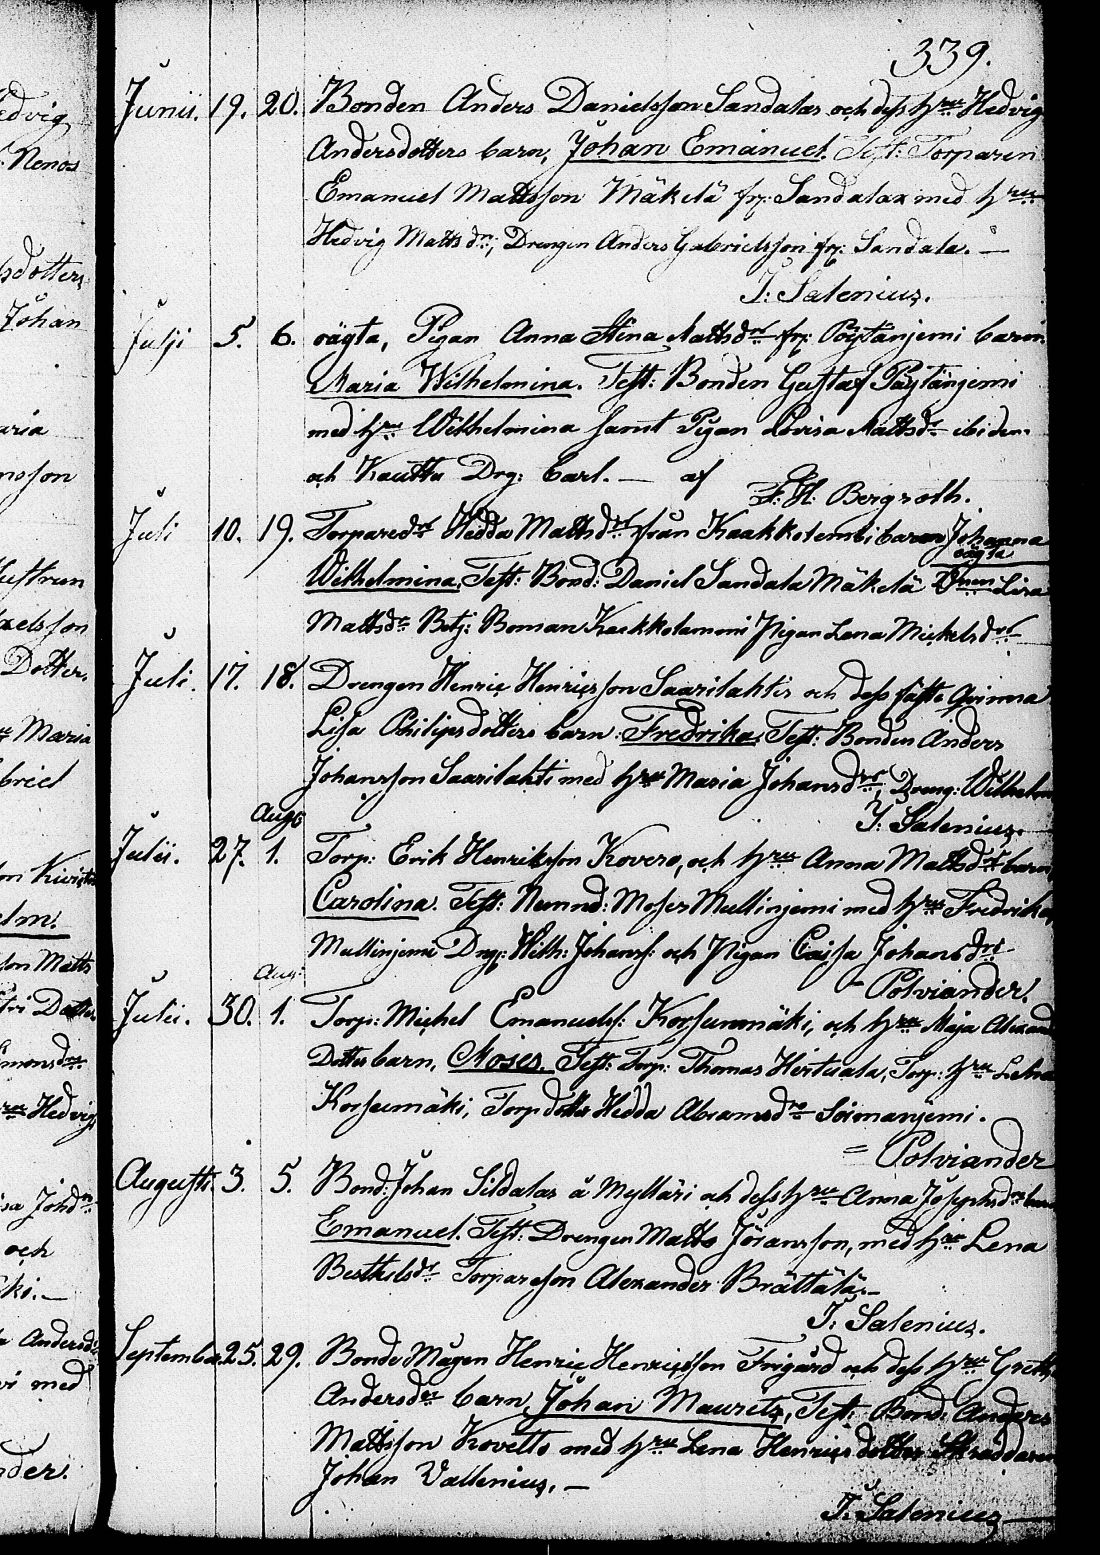 339.
Junii. 19. 20. Bonden Anders Danielsson Sandalas och dess hru Hedvig
Andersdotters barn, Johan Emanuel. Test: Torparen
Emanuel Mattsson Mäkelä frn Sandalax med hru
Hedvig Matts dr, Drengen Anders Gabrielsson frn Sandala. —
I: Salenius.
Julii 5. 6. oägta, Pigan Anna Stina Mattsdr frn Pöytänjemi barn
Maria Wilhelmina. Test: Bonden Gustaf Pöytänjemi
med hru Wilhelmina samt Pigan Lovisa Mattsdr ibidem
och Kauttu Drg: Carl. — af
F. H: Bergroth.
Juli 10. 19. Torparedr Hedda Mattsdr från Kaakkolembi barn Johanna
oägta
Wilhelmina, Test: Bond: Daniel Sandala Mäkelä Lisa
Mattsdr Betj: Boman Kaakkolammi Pigan Lena Mickelsdr
Juli. 17. 18. Drengen Henric Henricsson Saarilahtis och dess fäste Qvinna
Lisa Philipsdotters barn Fredrika. Test: Bonden Anders
Johansson Saarilahti med hru Maria Johansdr, Dreng: Wilhelm
I: Salenius. —
Aug:
Julii. 27. 1. Torp: Erik Henriksson Kovero, och hru Anna Mattsdrs barn,
Carolina. Test: Nämnd: Moses Mullinjemi med hru Fredrika
Mullinjemi Drg: Wilh: Johanss: och Pigan Caisa Johansdr
Polviander.
Aug:
Julii. 30. 1. Torp: Michel Emanuelss: Korsunmäki, och hru Maja
Dotters barn, Moses. Test: Torp: Thomas Hirtuala, Torp: hru Lena
Korsunmäki, Torp dotter Hedda Abramsdr Soimanjemi.
= Polviander
Augusti. 3. 5. Bond: Johan Sildalas å Mylläri och dess hru Anna Josephsdrs barn
Emanuel. Test: Drengen Matts Jöransson, med hru Lena
Berthilsdr Torpareson Alexander Brättälä. —
I. Salenius.
September 25. 29. Bonde Mågen Henric Henricsson Frigård och dess hru Greth.
Andersdrs barn, Johan Mauritz, Test: Bond: Anders
Mattsson Kovetto med hru Lena Henricsdotter Skräddaren
Johan Vallenius. —
I. Salenius —